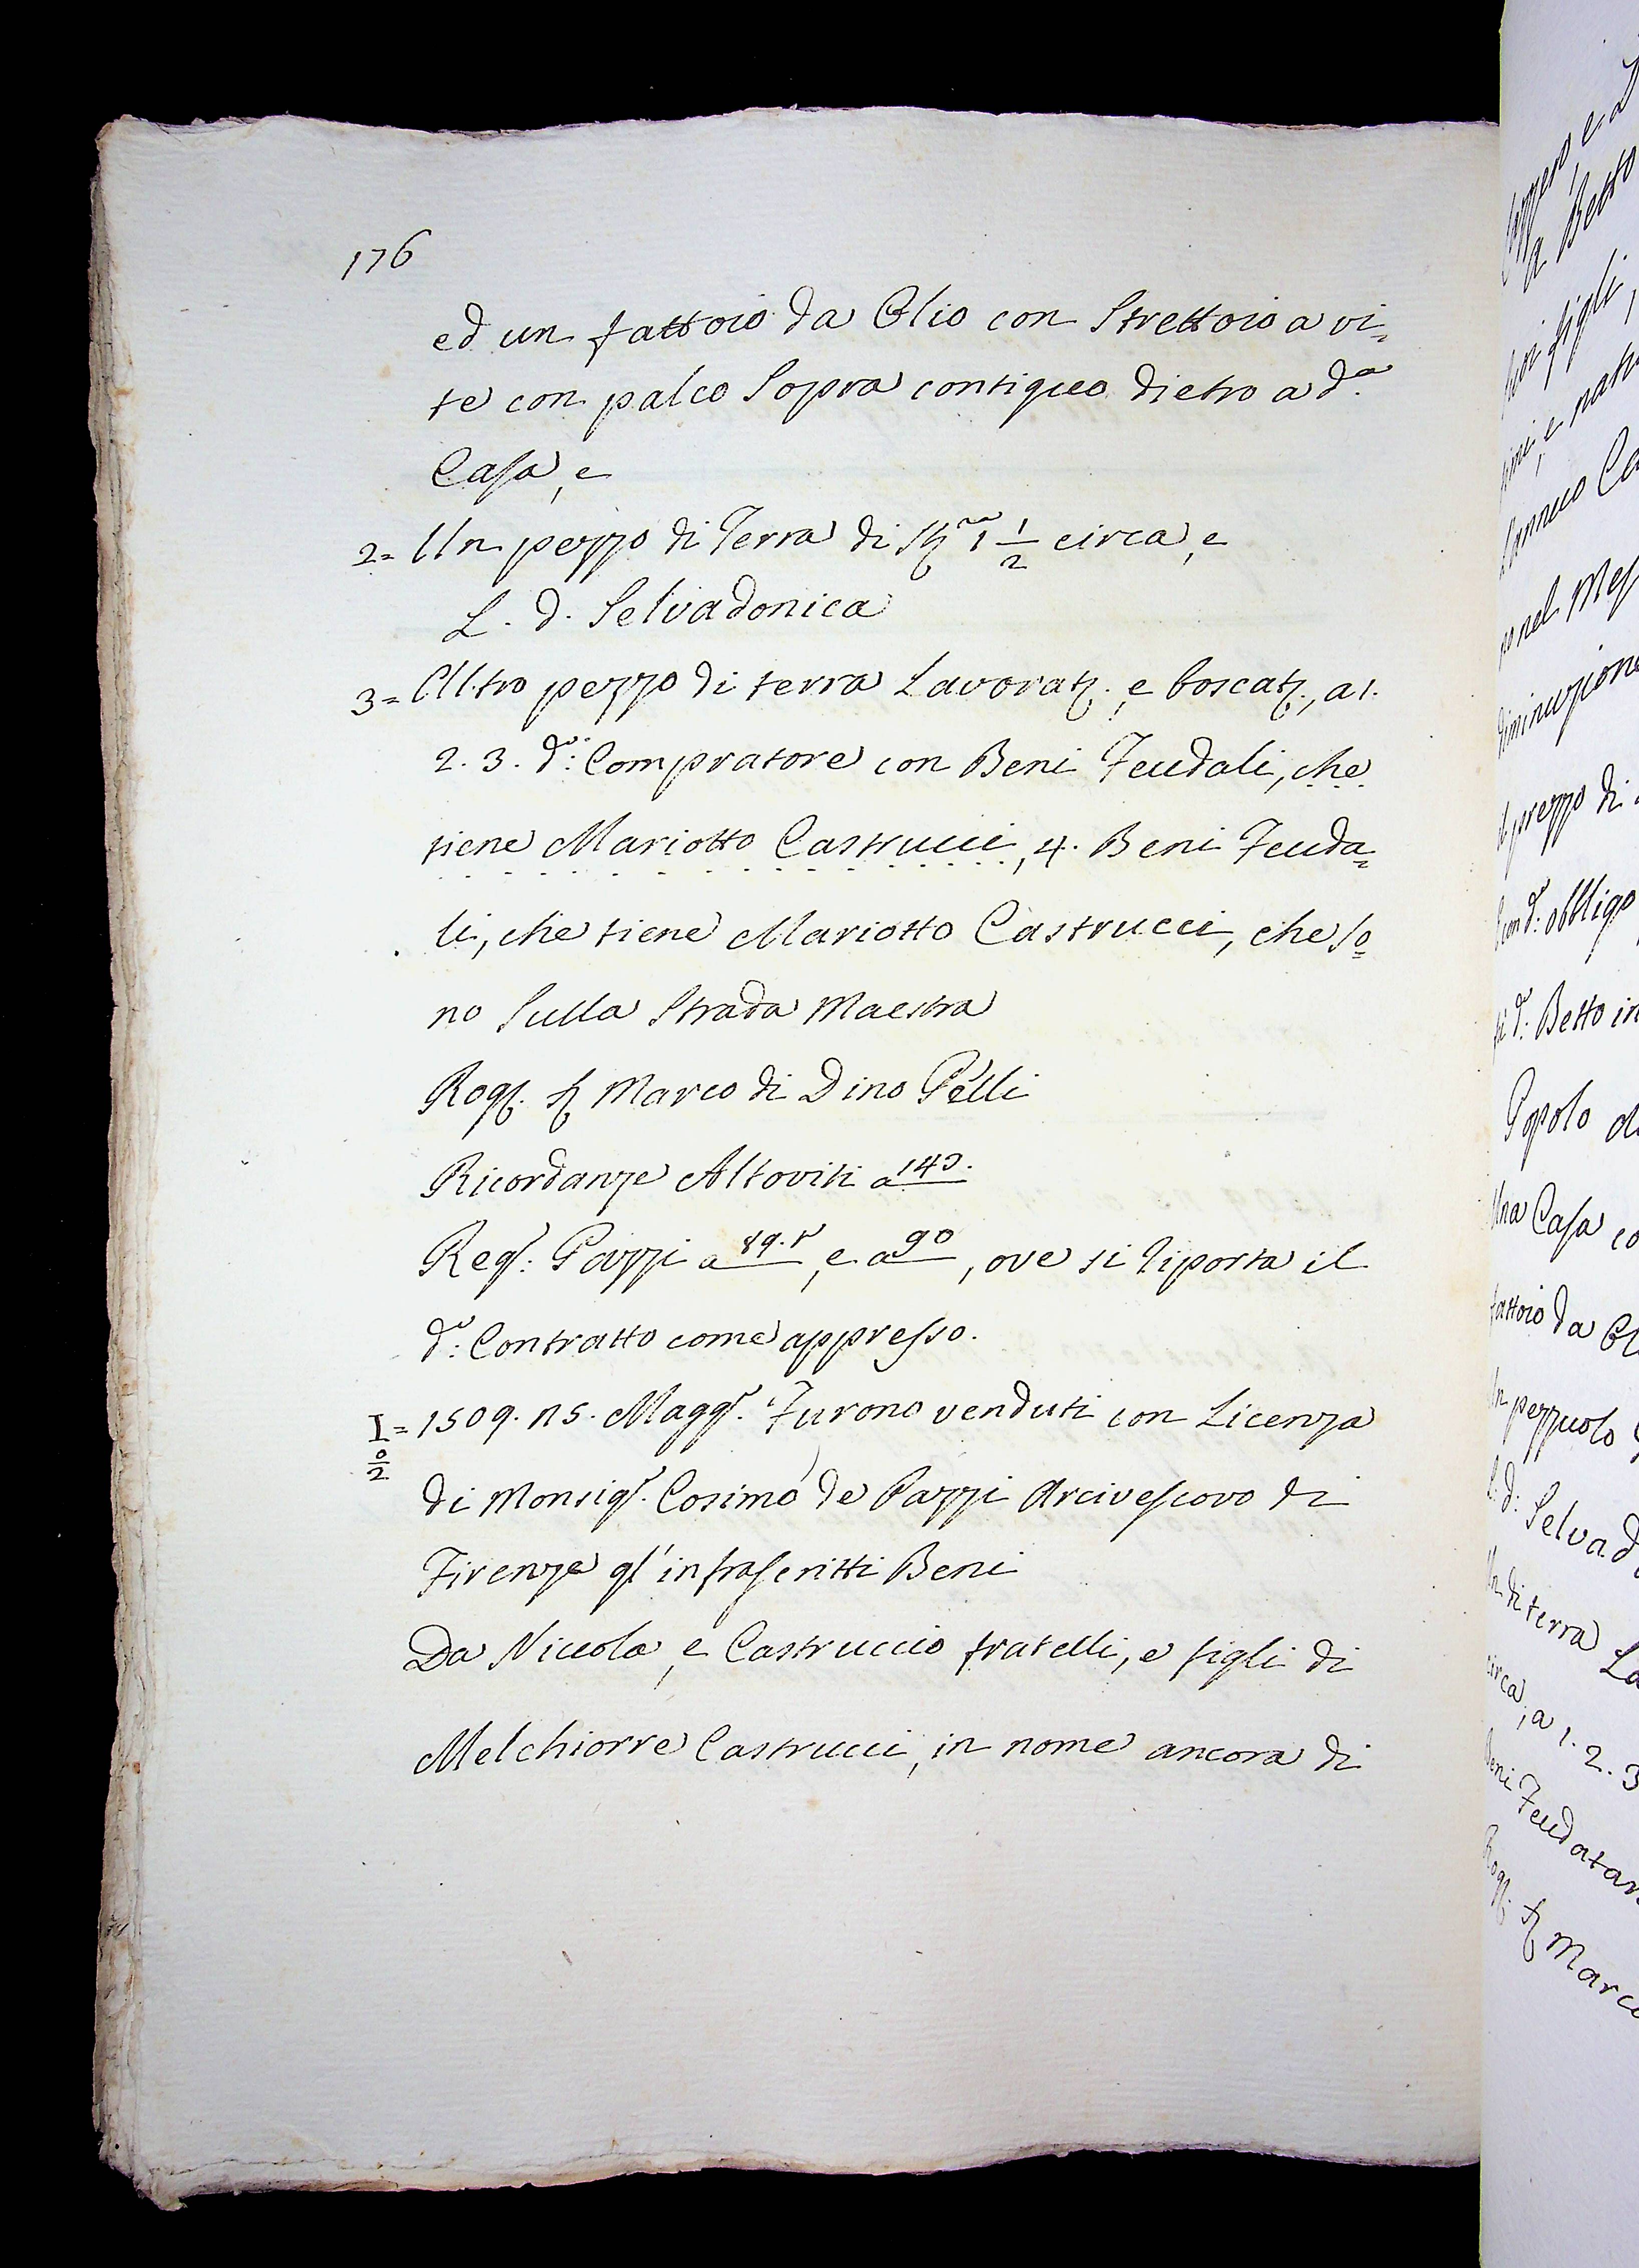 176
ed un fattoio da Olio con Strettoio a vi=
te con palco sopra contiguo dietro a d.ª
Casa, e
2= Un pezzo di Terra di 1 1/2 circa, e
L. d. Selvadonica
3= Altro pezzo di terra Lavorat. e boscat., a 1.
2. 3. d.º Compratore con Beni Feudali, che
tiene Mariotto Castrucci, 4. Beni Feuda=
li, che tiene Mariotto Castrucci, che so=
no sulla strada Maestra
Rog. Marco di Dino Pelli
Ricordanze Altoviti a
Reg. Pazzi a 89.t, e a 90, ove si riporta il
d.º Contratto come appresso.
I= 1509. 15. Magg. Furono venduti con Licenza
o/2
di Monsig.r Cosimo de Pazzi Arcivescovo di
Firenze gl'infrascritti Beni
Da Niccola, e Castruccio fratelli, e figli di
Melchiorre Castrucci, in nome ancora di
a Betto
figli,
nel Mes
diminuzione
prezzo di
obbligo
d.º Betto in
Popolo di
Una Casa co
fattoio da Ol
pezzuolo
L. d. Selvad
di terra La
circa, a 1. 2. 3
Beni Feudatar
Rog. Marco